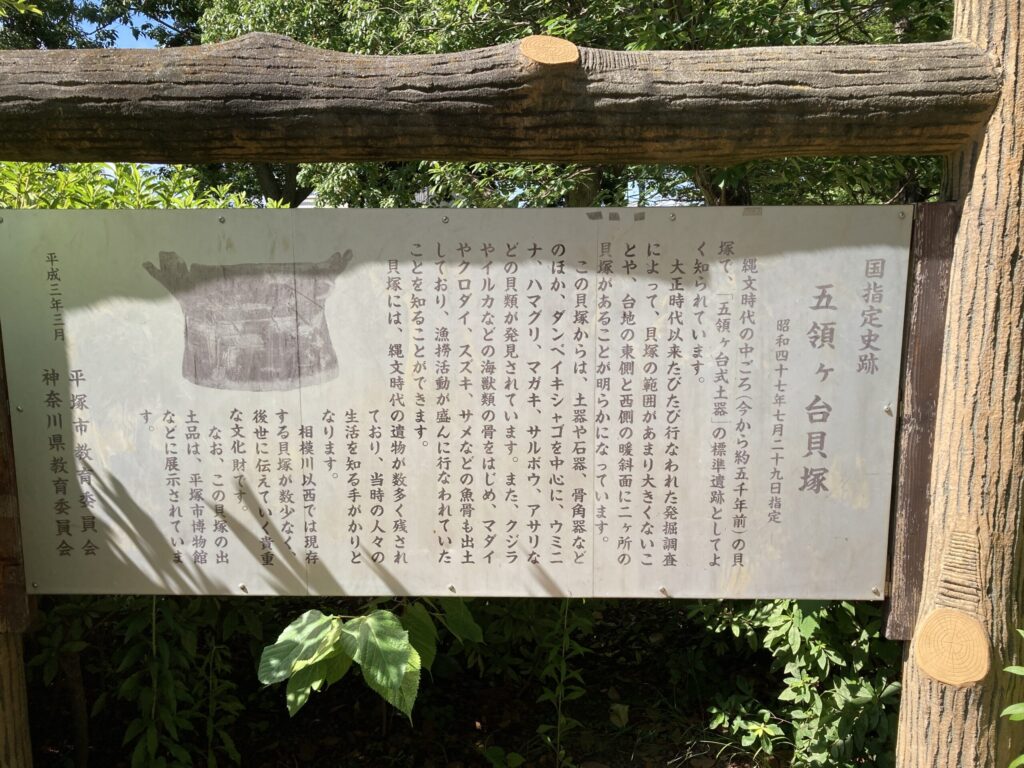 国指定史跡
五領ヶ台貝塚
昭和四十七年七月二十九日指定
縄文時代の中ごろ（今から約五千年前）の貝
塚で、「五領ヶ台式土器」の標準遺跡としてよ
く知られています。
大正時代以来たびたび行なわれた発掘調査
によって、貝塚の範囲があまり大きくないこ
とや、台地の東側と西側の暖斜面に二ヶ所の
貝塚があることが明らかになっています。
この貝塚からは、土器や石器、骨角器など
のほか、ダンベイキシャゴを中心に、ウミニ
ナ、ハマグリ、マガキ、サルボウ、アサリな
どの貝類が発見されています。また、クジラ
やイルカなどの海獣類の骨をはじめ、マダイ
やクロダイ、スズキ、サメなどの魚骨も出土
しており、漁撈活動が盛んに行なわれていた
ことを知ることができます。
貝塚には、縄文時代の遺物が数多く残され
ており、当時の人々の
生活を知る手がかりと
なります。
相模川以西では現存
する貝塚が数少なく、
後世に伝えていく貴重
な文化財です。
なお、この貝塚の出
土品は、平塚市博物館
などに展示されていま
す。
平成三年三月
平塚市教育委員会
神奈川県教育委員会